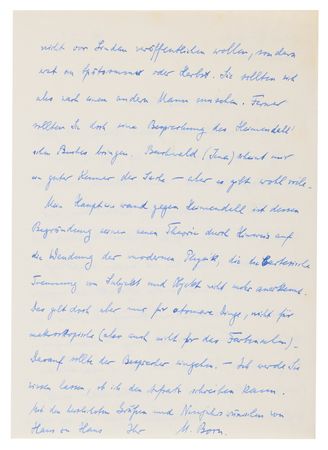 nicht vor Linden veröffentlichen wollen, sondern
erst im Spätsommer oder Herbst. Sie sollten sich
also nach einem andern Mann umsehen. Ferner
sollten Sie doch eine Besprechung des Heimendahl'
schen Buches bringen. Buchwald (Jena) scheint mir
ein guter Kenner der Sache – aber es gibt wohl viele.
Mein Haupteinwand gegen Heimendahl ist dessen
Begründung seiner neuen Theorie durch Hinweis auf
die Wendung der modernen Physik, die die Cartesische
Trennung von Subjekt und Objekt nicht mehr anerkennt.
Das gilt doch aber nur für atomare Dinge, nicht für
makroskopische (also auch nicht für das Farbsehen).
Darauf sollte der Besprecher eingehen. – Ich werde Sie
wissen lassen, ob ich den Aufsatz schreiben kann.
Mit den herzlichsten Grüßen und Neujahrswünschen von
Haus zu Haus Ihr M. Born.